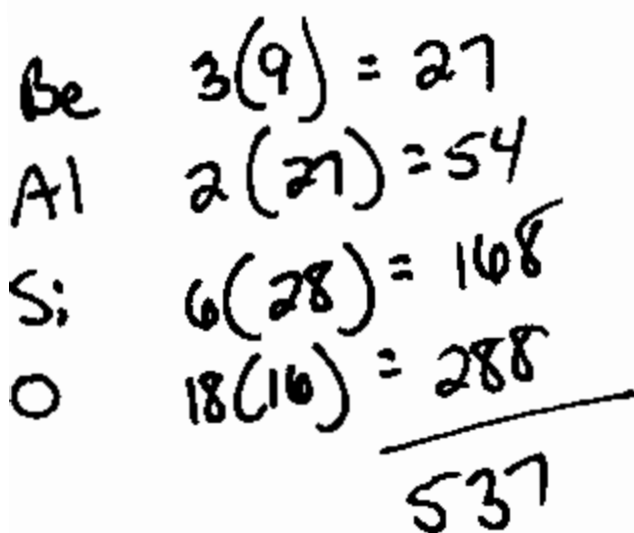 Be 3(9) = 27
Al 2(27) = 54
Si 6(28) = 168
O 18(16) = 288
537